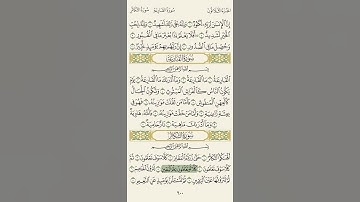 الجزء الثلاثون سورة القارعة سورة التكاثر
إِنَّ ٱلْإِنسَٰنَ لِرَبِّهِۦ لَكَنُودٌ ٦ وَإِنَّهُۥ عَلَىٰ ذَٰلِكَ لَشَهِيدٌ ٧ وَإِنَّهُۥ لِحُبِّ
ٱلْخَيْرِ لَشَدِيدٌ ٨ أَفَلَا يَعْلَمُ إِذَا بُعْثِرَ مَا فِى ٱلْقُبُورِ ٩
وَحُصِّلَ مَا فِى ٱلصُّدُورِ ١٠ إِنَّ رَبَّهُم بِهِمْ يَوْمَئِذٍ لَّخَبِيرٌۢ ١١
سُورَةُ القَارِعَةِ
بِسْمِ ٱللَّهِ ٱلرَّحْمَٰنِ ٱلرَّحِيمِ
ٱلْقَارِعَةُ ١ مَا ٱلْقَارِعَةُ ٢ وَمَآ أَدْرَىٰكَ مَا ٱلْقَارِعَةُ ٣ يَوْمَ
يَكُونُ ٱلنَّاسُ كَٱلْفَرَاشِ ٱلْمَبْثُوثِ ٤ وَتَكُونُ ٱلْجِبَالُ
كَٱلْعِهْنِ ٱلْمَنفُوشِ ٥ فَأَمَّا مَن ثَقُلَتْ مَوَٰزِينُهُۥ ٦ فَهُوَ فِى
عِيشَةٍ رَّاضِيَةٍ ٧ وَأَمَّا مَنْ خَفَّتْ مَوَٰزِينُهُۥ ٨ فَأُمُّهُۥ هَاوِيَةٌ
٩ وَمَآ أَدْرَىٰكَ مَا هِيَهْ ١٠ نَارٌ حَامِيَةٌۢ ١١
سُورَةُ التَّكَاثُرِ
بِسْمِ ٱللَّهِ ٱلرَّحْمَٰنِ ٱلرَّحِيمِ
أَلْهَىٰكُمُ ٱلتَّكَاثُرُ ١ حَتَّىٰ زُرْتُمُ ٱلْمَقَابِرَ ٢ كَلَّا سَوْفَ تَعْلَمُونَ ٣ ثُمَّ
كَلَّا سَوْفَ تَعْلَمُونَ ٤ كَلَّا لَوْ تَعْلَمُونَ عِلْمَ ٱلْيَقِينِ ٥ لَتَرَوُنَّ ٱلْجَحِيمَ
٦ ثُمَّ لَتَرَوُنَّهَا عَيْنَ ٱلْيَقِينِ ٧ ثُمَّ لَتُسْـَٔلُنَّ يَوْمَئِذٍ عَنِ ٱلنَّعِيمِ ٨
٦٠٠